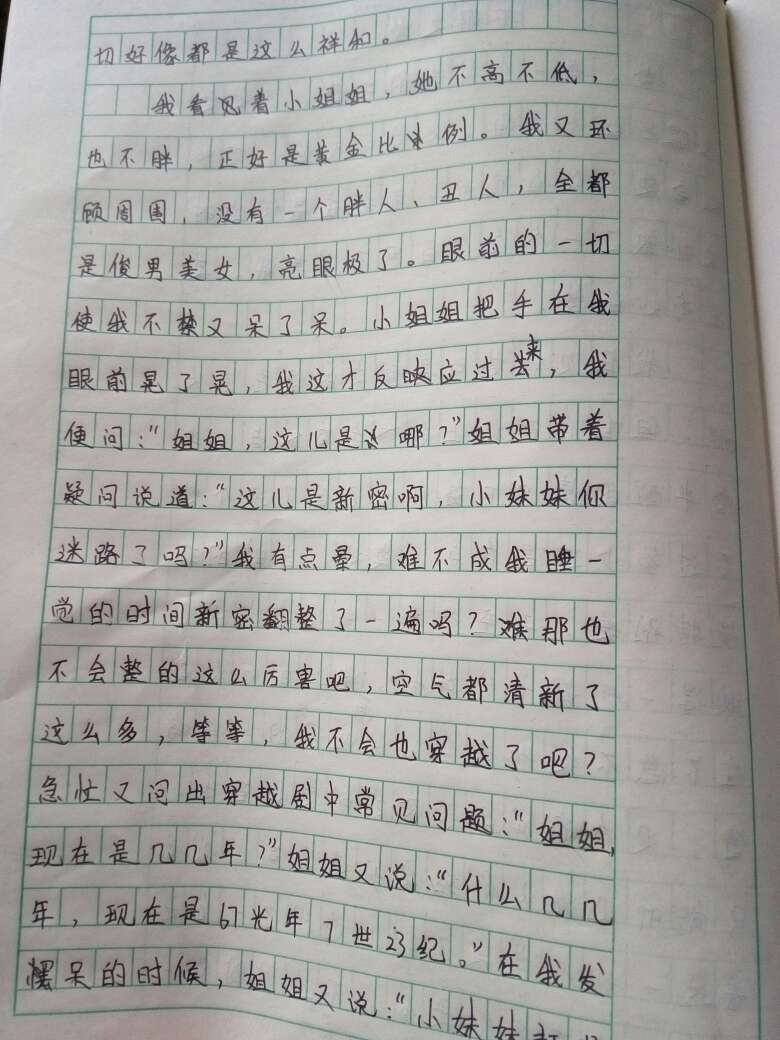 切好像都是这么祥和。
我看见着小姐姐，她不高不低，
也不胖，正好是黄金比例。我又环
顾周围，没有一个胖人、丑人，全都
是俊男美女，亮眼极了。眼前的一切
使我不禁又呆了呆。小姐姐把手在我
眼前晃了晃，我这才反映应过来，我
便问：“姐姐，这儿是哪？”姐姐带着
疑问说道：“这儿是新密啊，小妹妹你
迷路了吗？”我有点晕，难不成我睡一
觉的时间新密翻整了一遍吗？难那也
不会整的这么厉害吧，空气都清新了
这么多，等等，我不会也穿越了吧？
急忙又问出穿越剧中常见问题：“姐姐，
现在是几几年？”姐姐又说：“什么几几
年，现在是67光年7世23纪。”在我发
呆的时候，姐姐又说：“小妹妹